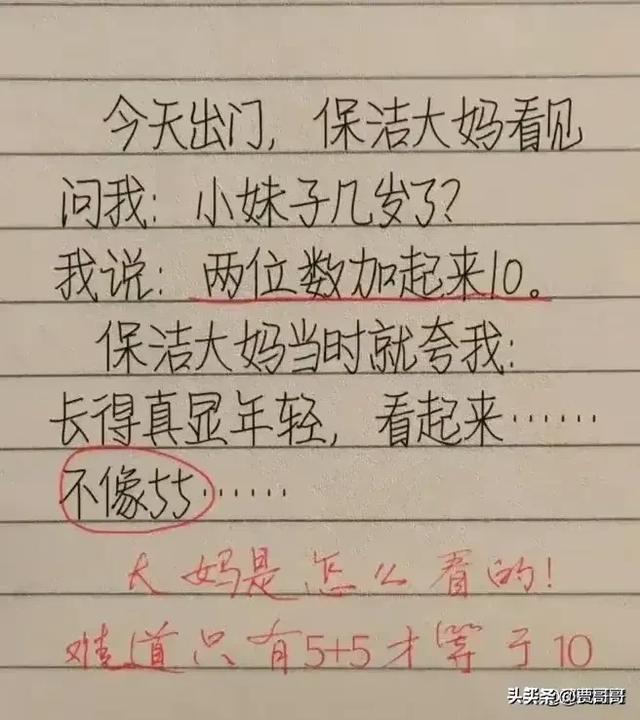 今天出门，保洁大妈看见
问我：小妹子几岁了？
我说：两位数加起来10。
保洁大妈当时就夸我：
长得真显年轻，看起来……
不像55……
大妈是怎么看的！
难道只有5+5才等于10
头条@贾哥哥